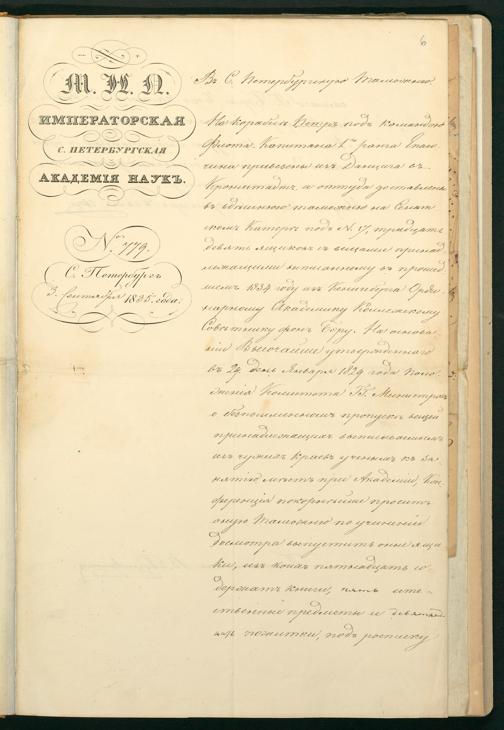 6
М. Н. П.
ИМПЕРАТОРСКАЯ
С. ПЕТЕРБУРГСКАЯ
АКАДЕМІЯ НАУКЪ.
№ 779.
С. Петербургъ
3. Сентября 1835. года.
Въ С. Петербургскую Таможню.
На корабле Петръ подъ командою
Флота Капитана 1го ранга Епан-
чина привезены изъ Данцига въ
Кронштадтъ, а оттуда доставлены
въ здѣшнюю таможню на
Катерѣ подъ N. 17, тридцать
девять ящиковъ съ вещами принад-
лежащими выписанному въ прошед-
шемъ 1834 году изъ Кенигсберга Орди-
нарному Академику Коллежскому
Совѣтнику фонъ Беру. На основа-
ніи Высочайше утвержденнаго
въ 29 день Января 1829 года Поло-
женія Комитета Гг. Министровъ
о безпошлинномъ пропускѣ вещей
принадлежащихъ выписываемымъ
изъ чужихъ краевъ ученымъ къ за-
нятію мѣстъ при Академіи, Кон-
ференція покорнѣйше проситъ
оную Таможню по учиненіи
досмотра выпустить оные ящи-
ки, изъ коихъ пятнадцать со-
держатъ книги, пять есте-
ственные предметы и девятнад-
цать пожитки, подъ росписку